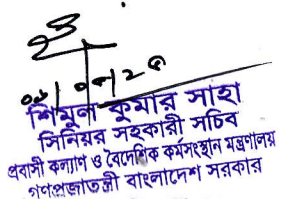 শিমুল কুমার সাহা
সিনিয়র সহকারী সচিব
প্রবাসী কল্যাণ ও বৈদেশিক কর্মসংস্থান মন্ত্রণালয়
গণপ্রজাতন্ত্রী বাংলাদেশ সরকার